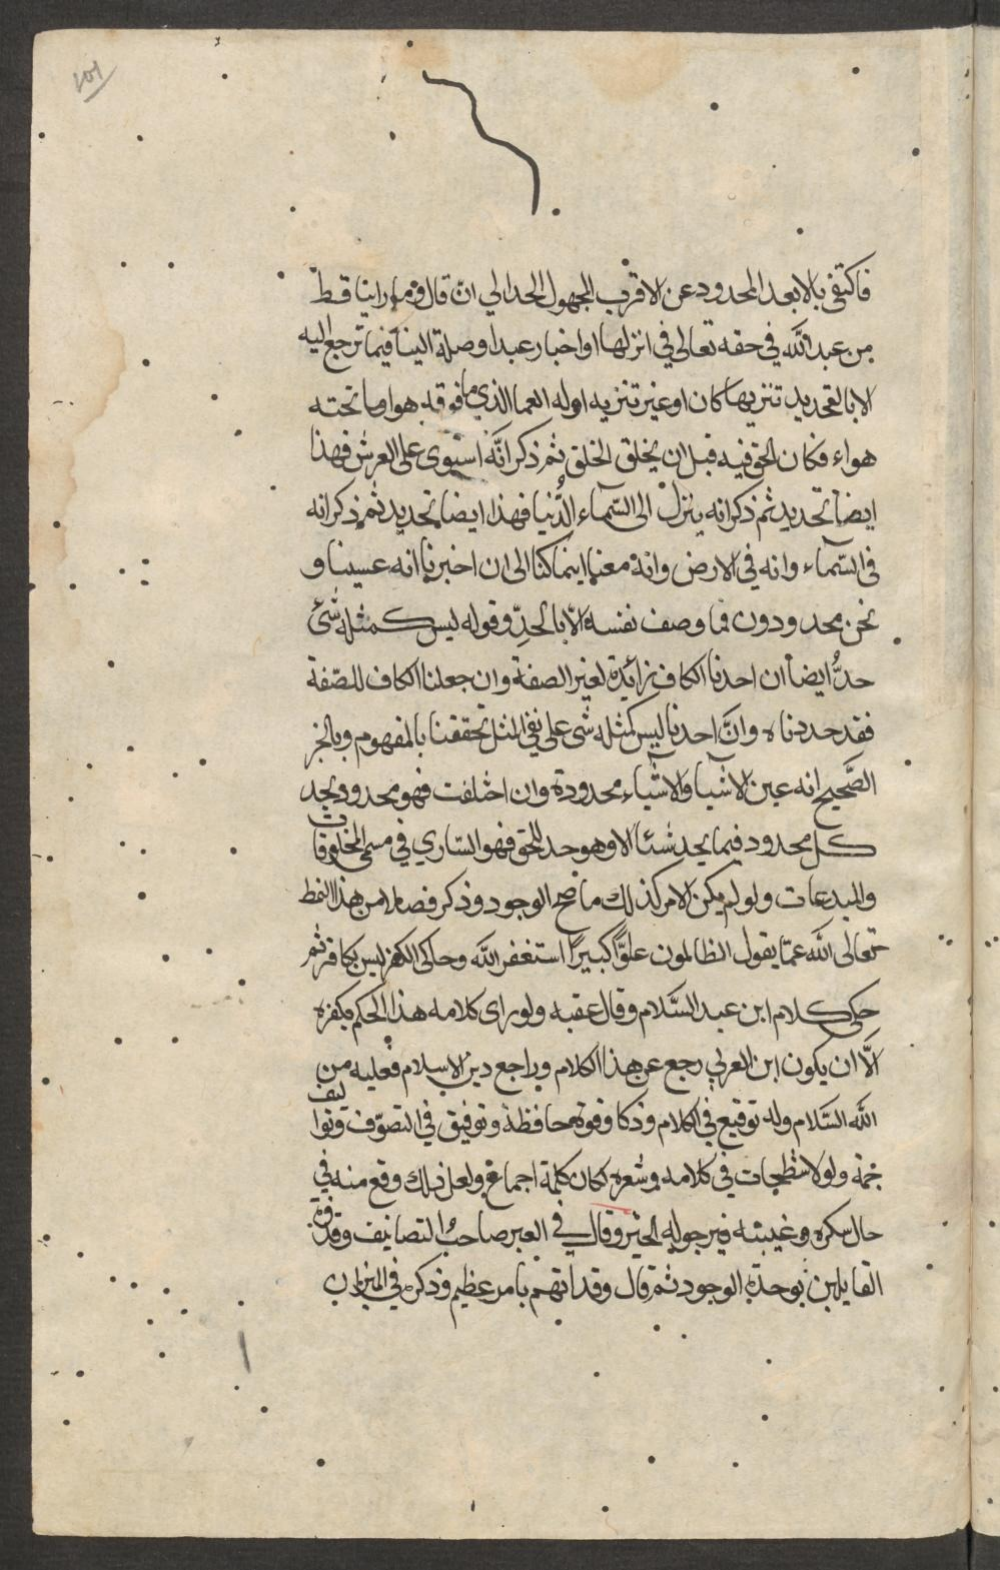 ١٥١
فاكتفى بالابعد المحدود عن الاقرب المجهول الحد الي ان قال وما راينا قط
من عبد الله في حقه تعالى في انزلها او اخبار عبد اوصله الينا فيما ترجع اليه
الا بالتحديد تنزيها كان او غير تنزيه اوله العما الذي ما فوقه هوا وما تحته
هواء فكان الحق فيه قبل ان يخلق الخلق ثم ذكر انّه استوى على العرش فهذا
ايضا تحديد ثم ذكر انه ينزل الى السّماء الدُّنيا فهذا ايضا تحديد ثم ذكر انه
في السّماء وانه في الارض وانه معنا اينما كنا الى ان اخبرنا انه عيننا و
نحن محدودون فما وصف نفسه الّا بالحدّ وقوله ليس كمثله شئ
حدٌّ ايضا ان اخدنا الكاف زائدة لغير الصفة وان جعلنا الكاف للصّفة
فقد حددناه وانَّ اخدنا ليس كمثله شى على نفي المثل تحققنا بالمفهوم وبالخبر
الصَّحيح انه عين الاشيا والاشياء محدودة وان اختلفت فهو محدود بحد
كل محدود فيما يحد شئا الا وهو حد للحق فهو الساري في مسمى المخلوقات
والمبدعات ولو لم يكن الامر كذلك ما صح الوجود وذكر فصلا من هذا النمط
تعالى الله عمّا يقول الظالمون علوّا كبيرًا استغفر الله وحاكى الكفر ليس بكافر ثم
حكى كلام ابن عبد السَّلام وقال عقبه ولو راى كلامه هذا الحكم بكفره
الَّا ان يكون ابن العربي رجع عن هذا الكلام وراجع دين الاسلام فعليه من
الله السَّلام وله توقيع في الكلام وذكا وقوة حافظة وتوفيق في التصوّف وتواليف
جمة ولولا شطحات في كلامه وشعره لكان كلمة اجماع ولعل ذلك وقع منه في
حال سكره وغيبته فنرجو له الخير وقال في العبر صاحب التصانيف وقدوة
القايلين بوحدة الوجود ثم قال وقد اتهم بامر عظيم وذكره في الميزان